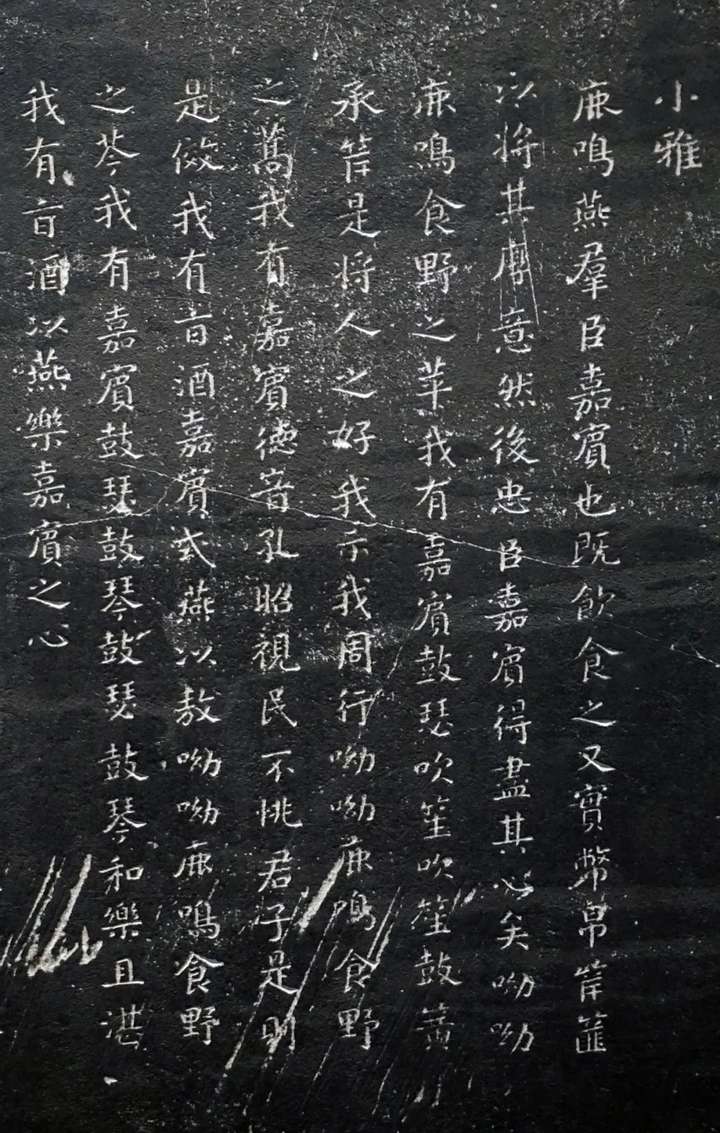 小雅
鹿鳴燕羣臣嘉賓也既飲食之又實幣帛筐篚
以將其厚意然後忠臣嘉賓得盡其心矣呦呦
鹿鳴食野之苹我有嘉賓鼓瑟吹笙吹笙鼓簧
承筐是將人之好我示我周行呦呦鹿鳴食野
之蒿我有嘉賓德音孔昭視民不恌君子是則
是傚我有旨酒嘉賓式燕以敖呦呦鹿鳴食野
之芩我有嘉賓鼓瑟鼓琴鼓瑟鼓琴和樂且湛
我有旨酒以燕樂嘉賓之心